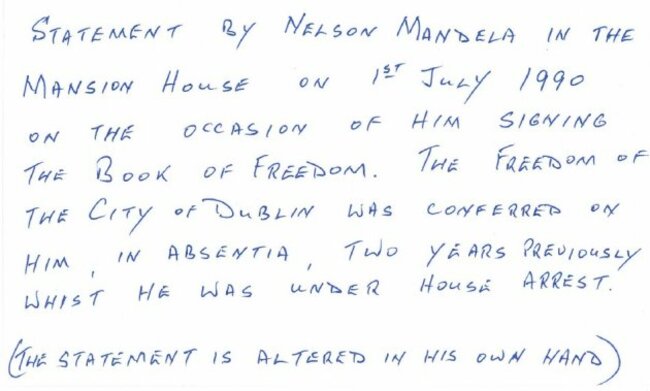 STATEMENT BY NELSON MANDELA IN THE
MANSION HOUSE ON 1ST JULY 1990
ON THE OCCASION OF HIM SIGNING
THE BOOK OF FREEDOM. THE FREEDOM OF
THE CITY OF DUBLIN WAS CONFERRED ON
HIM, IN ABSENTIA, TWO YEARS PREVIOUSLY
WHIST HE WAS UNDER HOUSE ARREST.
(THE STATEMENT IS ALTERED IN HIS OWN HAND)